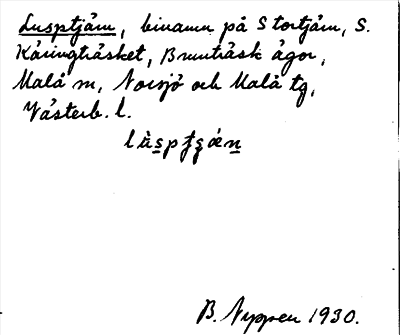 Lusptjärn, binamn på Stortjärn, S.
Käringträsket, Bruntråsk ägor,
Malå sn, Norsjö och Malå tg,
Västerb. l.
B. Nyppen 1930.